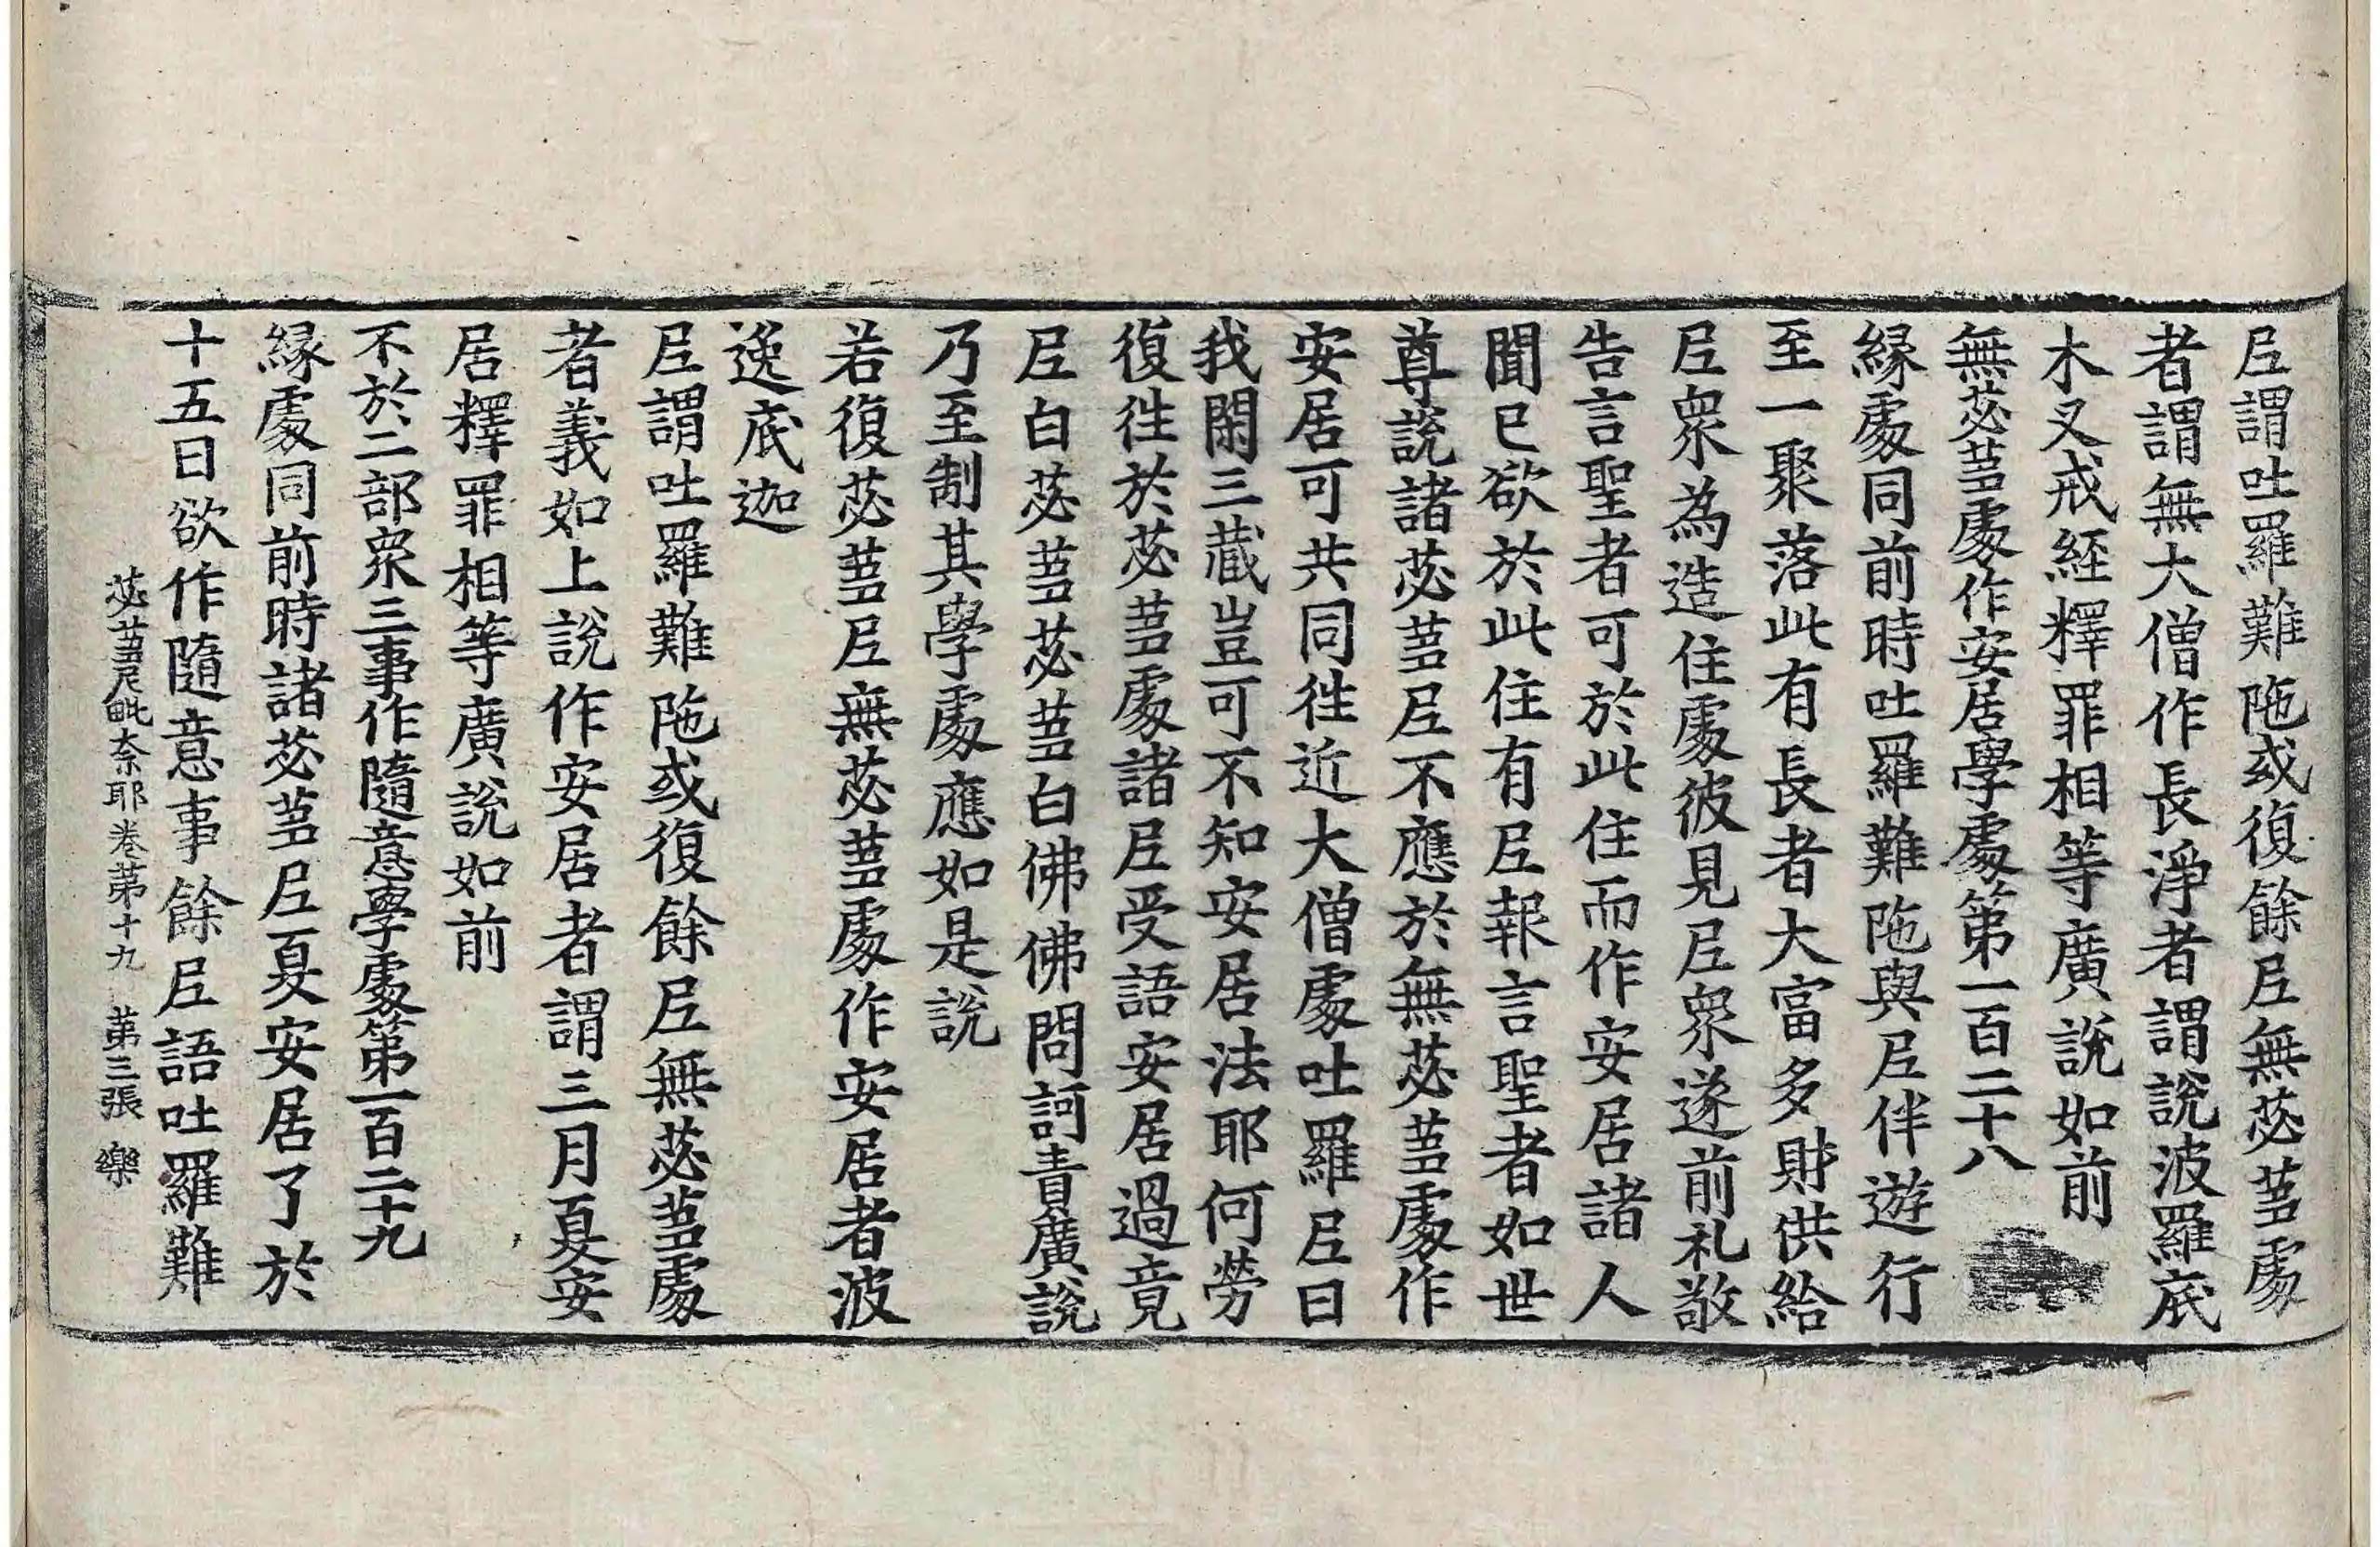 尼謂吐羅難陁或復餘尼無苾蒭處
者謂無大僧作長淨者謂說波羅底
木叉戒経釋罪相等廣說如前
無苾蒭處作安居學處第一百二十八
緣處同前時吐羅難陁與尼伴遊行
至一聚落此有長者大富多財供給
尼衆為造住處彼見尼衆遂前礼敬
告言聖者可於此住而作安居諸人
聞已欲於此住有尼報言聖者如世
尊說諸苾蒭尼不應於無苾蒭處作
安居可共同徃近大僧處吐羅尼曰
我閑三藏豈可不知安居法耶何勞
復徃於苾蒭處諸尼受語安居過竟
尼白苾蒭苾蒭白佛佛問訶責廣說
乃至制其學處應如是說
若復苾蒭尼無苾蒭處作安居者波
逸底迦
尼謂吐羅難陁或復餘尼無苾蒭處
者義如上說作安居者謂三月夏安
居釋罪相等廣說如前
不於二部衆三事作隨意學處第一百二十九
緣處同前時諸苾蒭尼夏安居了於
十五日欲作隨意事餘尼語吐羅難
苾蒭尼毗奈耶卷第十九　第三張　樂